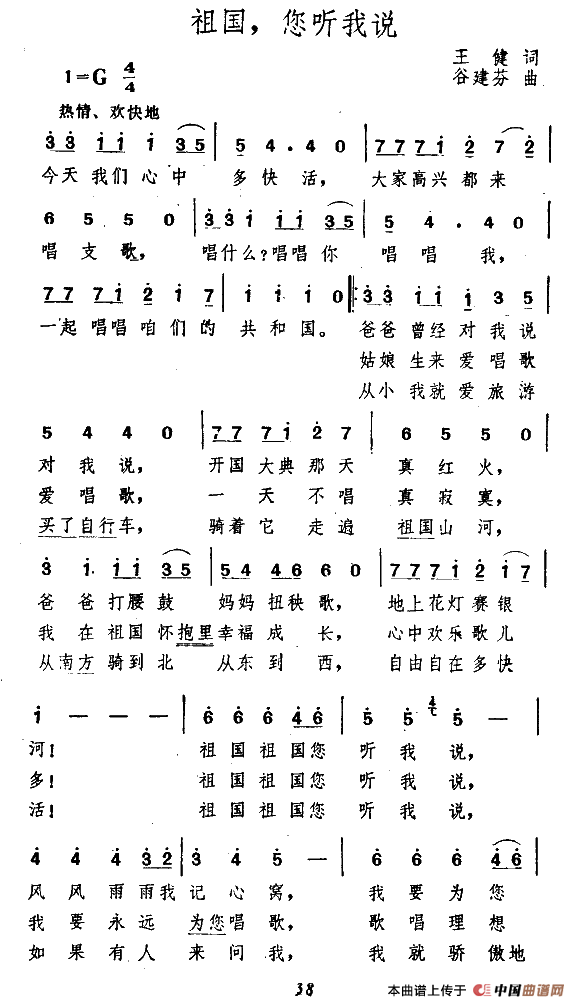 祖国，您听我说
王 健 词
1=G 4/4
谷建芬 曲
热情、欢快地
3 3 1 1 1 3 5 | 5 4 · 4 0 | 7 7 7 1 2 7 2 |
今天 我们 心 中 多 快 活， 大家高兴 都 来
6 5 5 0 | 3 3 1 1 1 3 5 | 5 4 · 4 0 |
唱 支 歌， 唱什么？唱唱你 唱 唱 我，
7 7 7 1 2 1 7 | 1 1 1 0 |: 3 3 1 1 1 3 5 |
一起 唱唱 咱 们 的 共 和 国。 爸爸 曾经 对 我 说
姑娘 生来 爱 唱 歌
从小 我就 爱 旅 游
5 4 4 0 | 7 7 7 1 2 7 | 6 5 5 0 |
对 我 说， 开国 大典 那 天 真 红 火，
爱 唱 歌， 一 天 不 唱 真 寂 寞，
买了自行车， 骑着 它 走 追 祖国山 河，
3 1 · 1 1 3 5 | 5 4 4 6 6 0 | 7 7 7 1 2 1 7 |
爸 爸 打腰 鼓 妈妈 扭秧 歌， 地上 花灯 赛 银
我 在 祖国 怀抱里幸福 成 长， 心中 欢乐 歌 儿
从南方 骑到 北 从东 到 西， 自由 自在 多 快
1 — — — | 6 6 6 6 4 6 | 5 5 4 5 — |
河！ 祖 国 祖 国您 听 我 说，
多！ 祖 国 祖 国您 听 我 说，
活！ 祖 国 祖 国您 听 我 说，
4 4 4 4 3 2 | 3 4 5 — | 6 6 6 4 6 |
风 风 雨 雨我 记 心 窝， 我 要 为 您
我 要 永 远 为您唱 歌， 歌 唱 理 想
如 果 有 人 来 问 我， 我 就 骄 傲地
38
本曲谱上传于 中国曲谱网